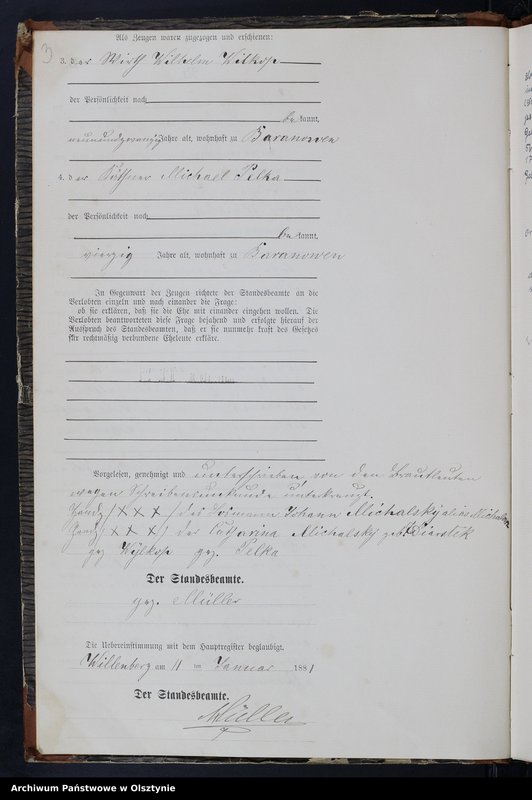 3
Als Zeugen waren zugezogen und erschienen:
3. der Wirth Wilhelm Wilkop
der Persönlichkeit nach
bekannt,
neunundzwanzig Jahre alt, wohnhaft zu Baranowen
4. der Käthner Michael Pelka
der Persönlichkeit nach
bekannt,
vierzig Jahre alt, wohnhaft zu Baranowen
In Gegenwart der Zeugen richtete der Standesbeamte an die
Verlobten einzeln und nach einander die Frage:
ob sie erklären, daß sie die Ehe mit einander eingehen wollen. Die
Verlobten beantworteten diese Frage bejahend und erfolgte hierauf der
Ausspruch des Standesbeamten, daß er sie nunmehr kraft des Gesetzes
für rechtmäßig verbundene Eheleute erkläre.
Vorgelesen, genehmigt und unterschrieben, von den Brautleuten
wegen Schreibensunkunde unterkreuzt.
Handz. XXX des Johann Michalsky alias
Handz. XXX der Catharina Michalsky geb.
gez. Wylkop gez. Pelka
Der Standesbeamte.
gez. Müller
Die Uebereinstimmung mit dem Hauptregister beglaubigt.
Willenberg am 11 ten Januar 1881
Der Standesbeamte.
Müller
Archiwum Państwowe w Olsztynie